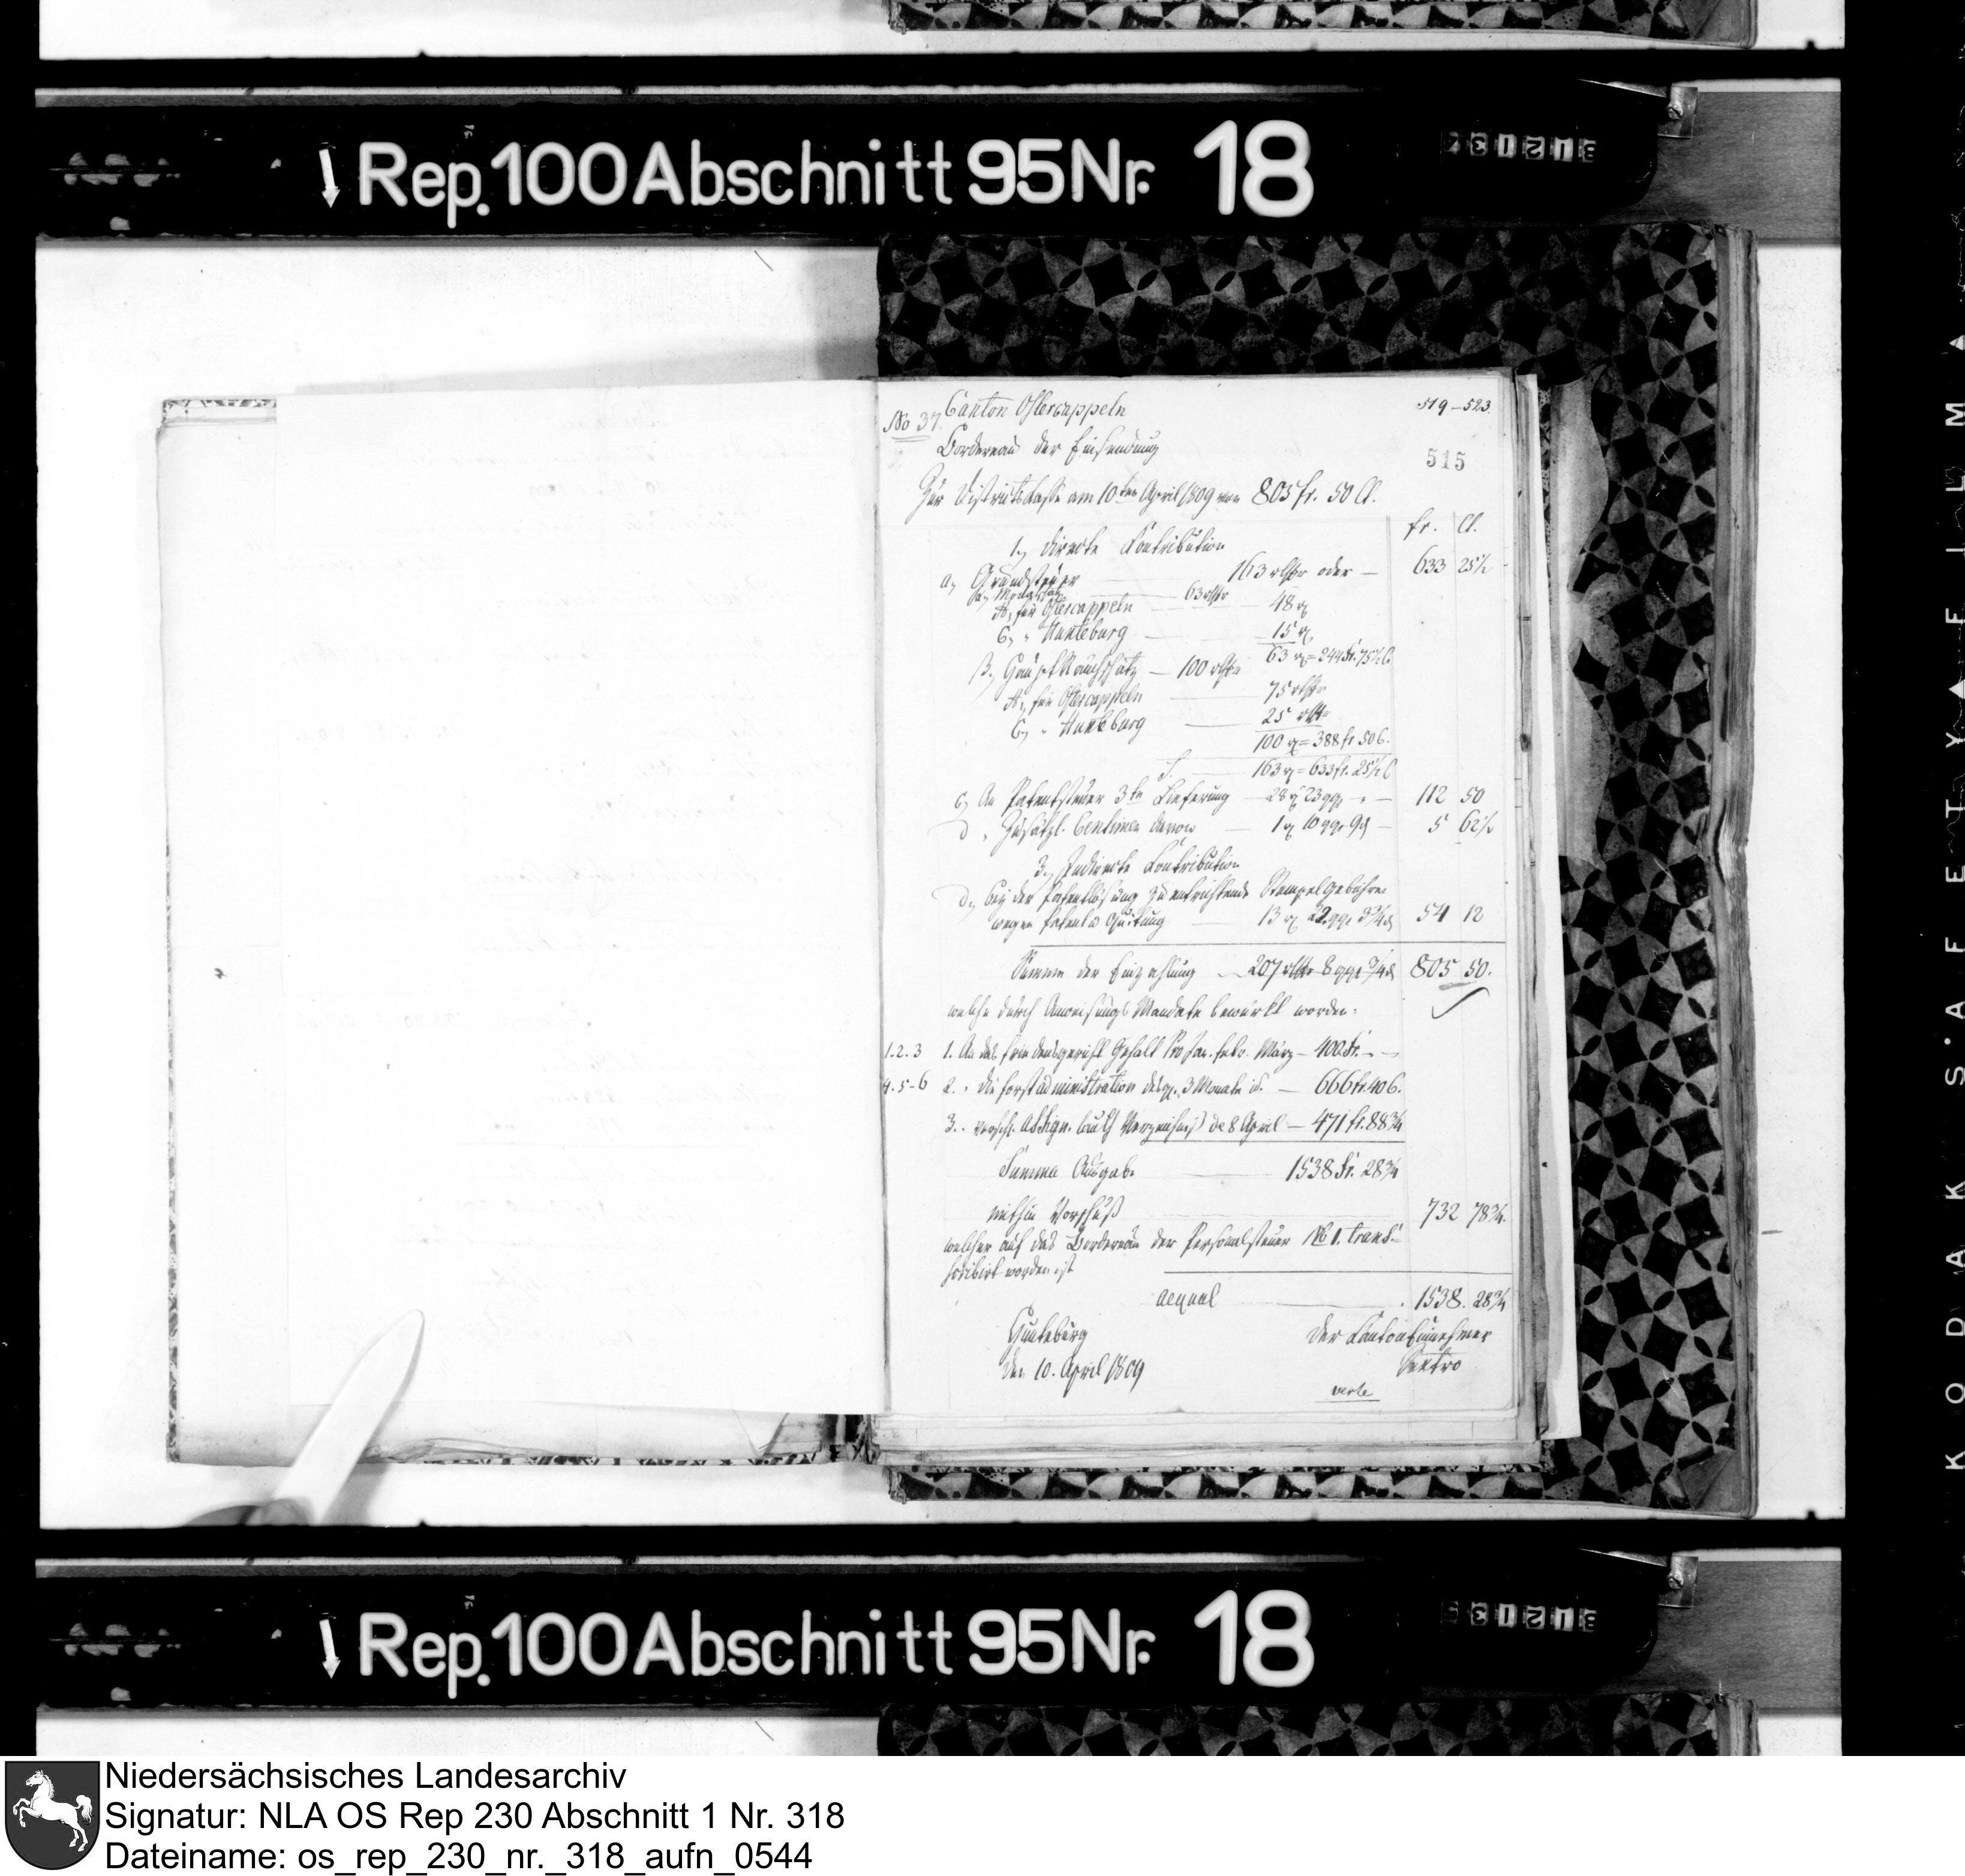 Rep. 100 Abschnitt 95 Nr. 18
No 37. Canton Ostercappeln
519-523.
Bordereau der Einsendung
515
Zur Districtskasse am 10ten April 1809 von 805 fr. 50 Ct.
fr. Ct.
1, directe Contribution
a, Grundsteuer 163 rthlr oder — 633 25½
63 rthlr
A, für Ostercappeln 48 rt
B, " Hunteburg 15 rt
63 rt = 244 fr. 75½ C
β, 100 rthlr
A, für Ostercappeln 75 rthlr
B, " Hunteburg 25 rthlr
100 rt = 388 fr 50 C.
S. 163 rt = 633 fr. 25½ C
c, An Patentsteuer 3te Lieferung — 28 rt 23 ggr " — 112 50
d " Zusätzl. Centimen davon — 1 rt 10 ggr 9 d — 5 62½
3, Indirecte Contribution
d, bey der Patentlösung zu entrichtende Stempelgebühren
wegen Patent Quitung 13 rt 22 ggr 3¾ d 54 12
Summe der Einzahlung — 207 rthlr 8 ggr ¾ d 805 50.
welche durch Anweisungs Mandate bewürkt worden:
1.2.3 1. An das Friedensgericht Gehalt pro Jan. Febr. März — 400 fr. - -
4.5-6 2. " die Forstadministration desgl. 3 Monate id. — 666 fr. 40 C.
3. " versch. Assign. laut Verzeichniß de 8 April — 471 fr. 88¾
Summa Ausgabe 1538 fr. 28¾
mithin Vorschuß 732 78¾.
welcher auf das Bordereau der Personalsteuer No 1. trans-
scribirt worden ist
aequal 1538. 28¾
Hunteburg Der Cantonseinnehmer
den 10. April 1809
verte
Rep. 100 Abschnitt 95 Nr. 18
KODAK S.A.F.E.T.Y. FILM
Niedersächsisches Landesarchiv
Signatur: NLA OS Rep 230 Abschnitt 1 Nr. 318
Dateiname: os_rep_230_nr._318_aufn_0544